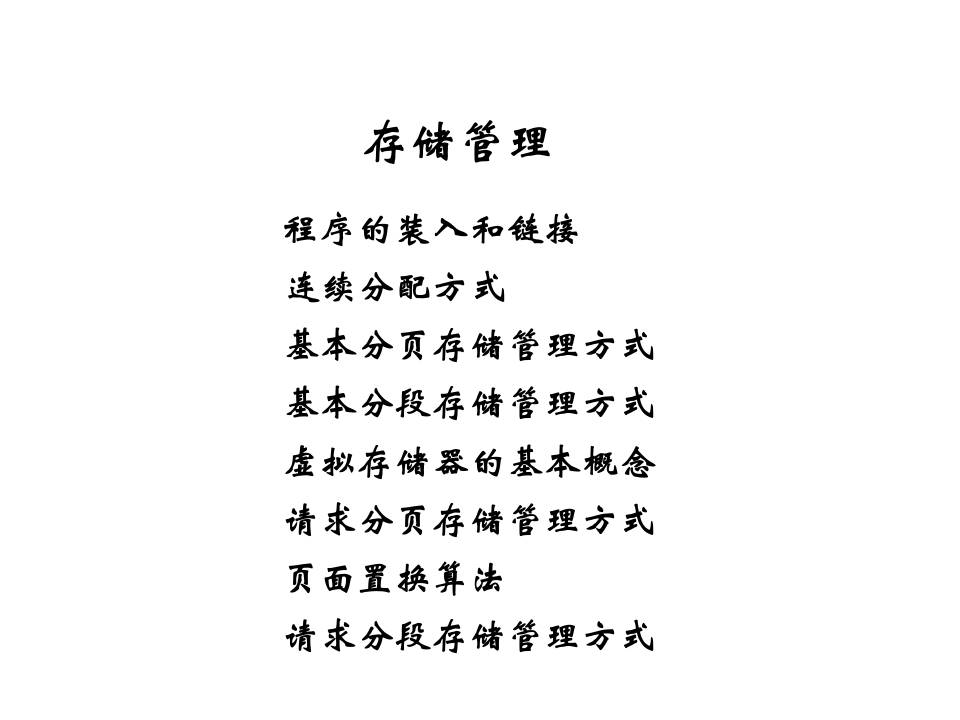 存储管理
程序的装入和链接
连续分配方式
基本分页存储管理方式
基本分段存储管理方式
虚拟存储器的基本概念
请求分页存储管理方式
页面置换算法
请求分段存储管理方式